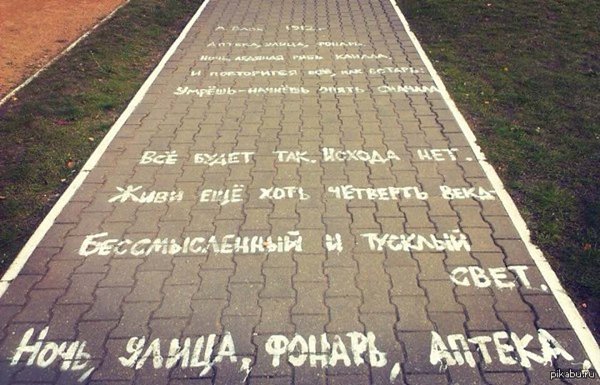 Ночь, улица, фонарь, аптека,
Бессмысленный и тусклый
свет.
Живи ещё хоть четверть века-
Всё будет так. Исхода нет.
Умрёшь-начнёшь опять сначала
И повторится всё, как встарь:
Ночь, ледяная рябь канала,
Аптека, улица, фонарь.
А. Блок 1912 г.
pikabu.ru